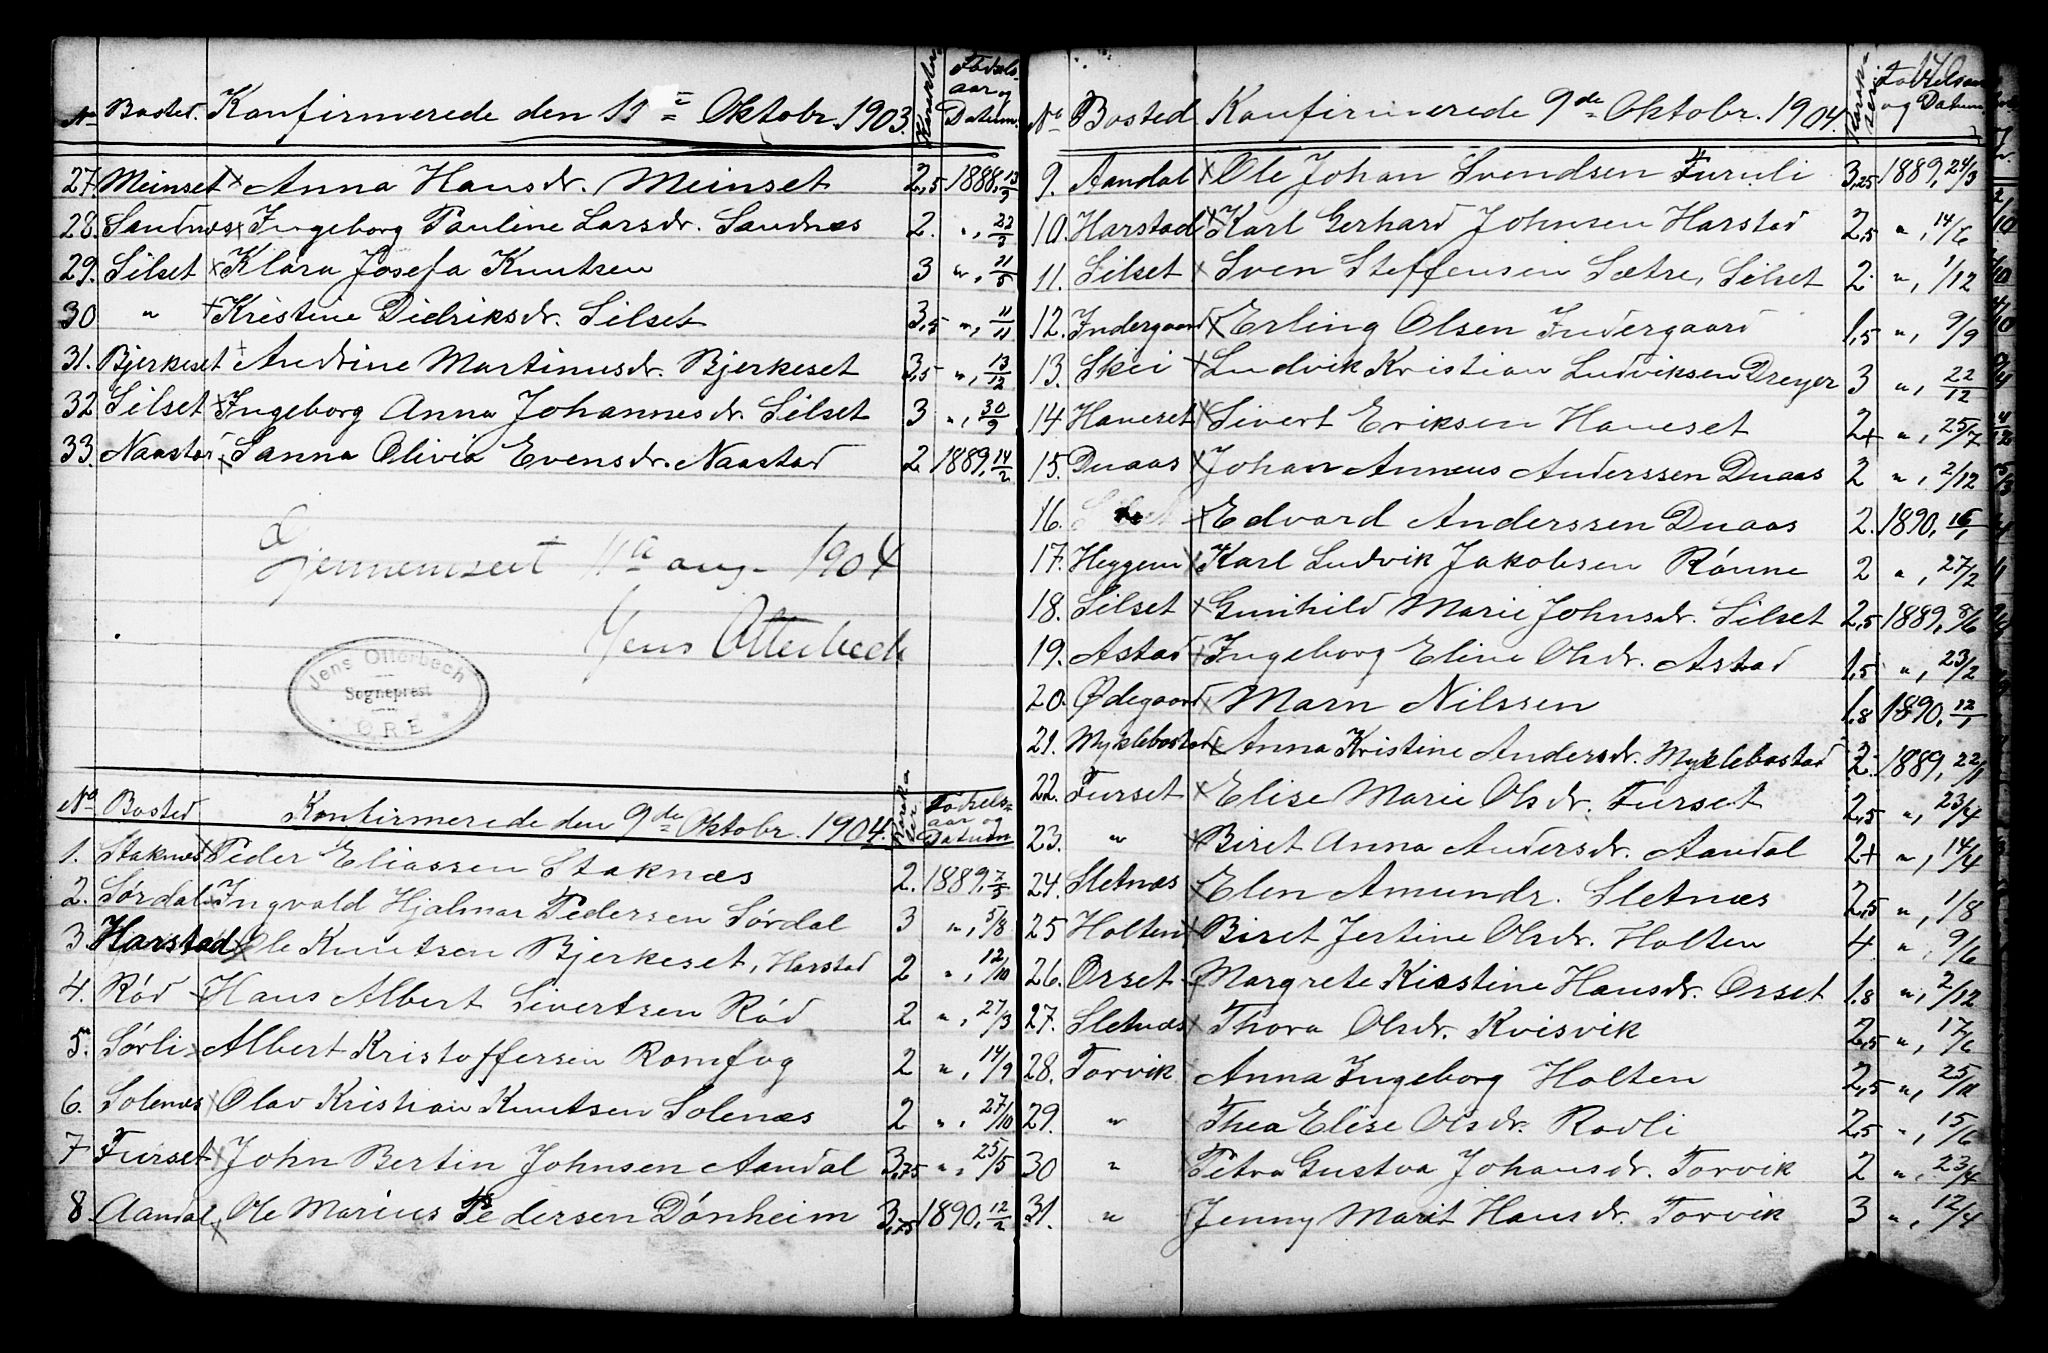 No Bosted. Konfirmerede den 11te Oktobr. 1903. Karakter Fødsels-
aar og
Datum.
27. Meinset × Anna Hansdr. Meinset 2,5 1888, 13/3
28. Sandnes × Ingeborg Pauline Larsdr. Sandnæs 2. ", 22/3
29. Silset × Klara Josefa Knutsen 3 ", 11/5
30 " + Kristine Didriksdr. Silset 3,5 ", 11/11
31. Bjerkeset + Andrine Martinusdr. Bjerkeset 3,5 ", 13/12
32 Silset × Ingeborg Anna Johannesdr. Silset 3 ", 30/9
33. Naastad × Sanna Olivia Evensdr. Naastad 2 1889, 14/2
Gjennemseet 11te aug. 1904
Jens Otterbech
Jens Otterbech
Sogneprest
ØRE
No Bosted Konfirmerede den 9de Oktobr. 1904. Karakter Fødsels-
aar og
Datum
1. Staknes × Peder Eliassen Staknæs 2. 1889, 7/5
2. Sørdal × Ingvald Hjalmar Pedersen Sørdal 3 ", 5/8
3 Harstad × Ole Knutsen Bjerkeset, Harstad 2 ", 12/10
4. Rød × Hans Albert Sivertsen Rød 2 ", 27/3
5. Sørli × Albert Kristoffersen Romfog 2 ", 14/9
6. Solenæs × Olav Kristian Knutsen Solenæs 2 ", 27/10
7 Furset × John Bertin Johnsen Aandal 3,75 ", 25/5
8. Aandal × Ole Marius Pedersen Dønheim 3,75 1890, 12/2
No Bosted Konfirmerede 9de Oktobr. 1904. Karakter Fødselsaar
og Datum
9. Aandal × Ole Johan Svendsen Furuli 3,25 1889, 24/3
10. Harstad × Karl Gerhard Johnsen Harstad 2,5 ", 14/6
11. Silset × Sven Steffensen Sætre, Silset 2. ", 1/12
12. Indergaard × Erling Olsen Indergaard 1,5 ", 9/9
13. Skei × Ludvik Kristian Ludviksen Dreyer 3 ", 22/12
14 Haveset × Sivert Eriksen Haveset 2+ ", 25/7
15. Duaas × Johan Anneus Anderssen Duaas 2 ", 2/12
16. × Edvard Anderssen Duaas 2. 1890, 16/1
17. Heggem × Karl Ludvik Jakobsen Rønne 2 ", 27/2
18. Silset × Gunhild Marie Johnsdr. Silset 2,5 1889, 8/6
19. Astad × Ingeborg Eline Olsdr. Astad 1,5 ", 23/2
20. Ødegaard × Marn Nilssen 1,8 1890, 12/1
21. Myklebostad × Anna Kristine Andersdr. Myklebostad 2. 1889, 22/1
22. Furset × Elise Marie Olsdr. Furset 2,5 ", 23/4
23. " × Biret Anna Andersdr. Aandal 2+ ", 14/4
24. Sletnæs × Elen Amundr. Sletnæs 2,5 ", 1/8
25 Holten × Biret Jertine Olsdr. Holten 4. ", 9/6
26. Orset × Margrete Kirstine Hansdr. Orset 1,8 ", 2/12
27. Sletnæs × Thora Olsdr. Kvisvik 2,5 ", 17/6
28. Torvik Anna Ingeborg Holten 2,5 ", 25/11
29. " Thea Elise Olsdr. Rodli 2,5 ", 15/6
30 " Petra Gustva Johansdr. Torvik 2 ", 23/4
31. " Jenny Marit Hansdr. Torvik 3 ", 12/4